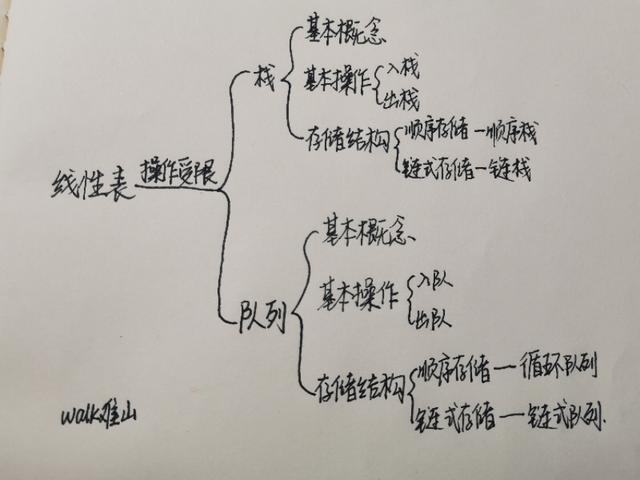 线性表
操作受限
栈
基本概念
基本操作
入栈
出栈
存储结构
顺序存储—顺序栈
链式存储—链栈
队列
基本概念
基本操作
入队
出队
存储结构
顺序存储—循环队列
链式存储—链式队列.
walk难山